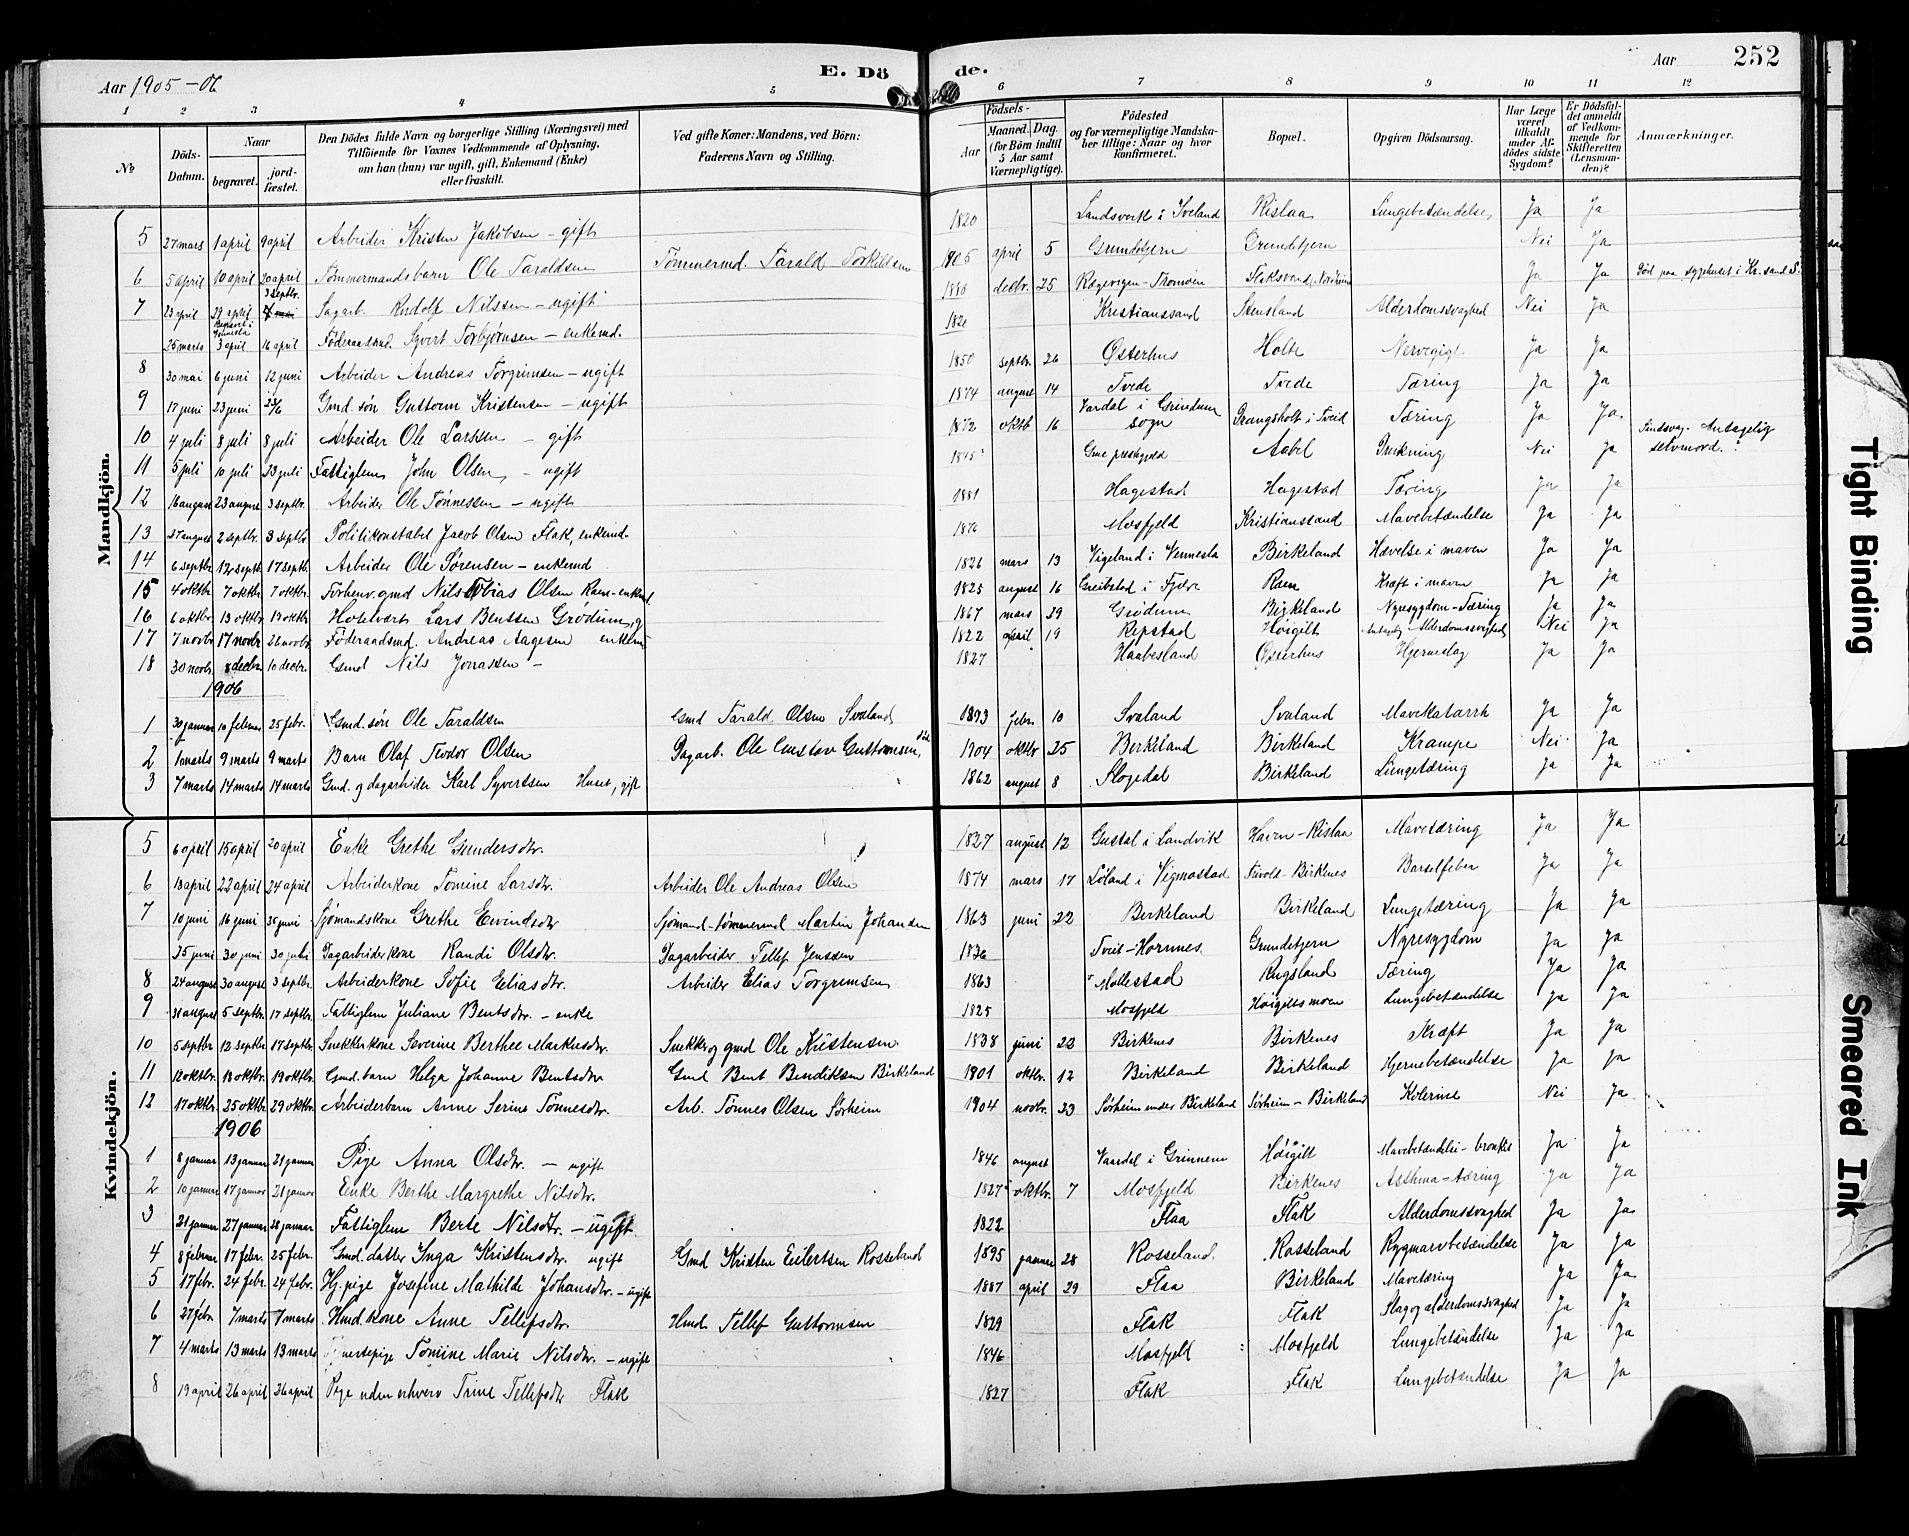 Aar 1905-06 E. Döde. Aar 252
1 2 3 4 5 6 7 8 9 10 11 12
№ Döds-Datum. Naar begravet. jordfæstet. Den Dödes fulde Navn og borgerlige Stilling (Næringsvei) med Tilföiende for Voxnes Vedkommende af Oplysning, om han (hun) var ugift, gift, Enkemand (Enke) eller fraskilt. Ved gifte Koner: Mandens, ved Börn: Faderens Navn og Stilling. Födsels- Aar Maaned. Dag. (for Börn indtil 5 Aar samt Værnepligtige). Födested og for værnepligtige Mandskaber tillige: Naar og hvor konfirmeret. Bopæl. Opgiven Dödsaarsag. Har Læge været tilkaldt under Afdödes sidste Sygdom? Er Dödsfaldet anmeldt af Vedkommende for Skifteretten (Lensmanden)? Anmærkninger.
Mandkjön.
5 27 mars 1 april 9 april Arbeider Kristen Jakobsen - gift 1820 Landsverk i Iveland Rislaa Lungebetændelse Ja Ja
6 5 april 10 april 20 april Tømmermandsbarn Ole Taraldsen Tømmermd. Tarald Torkildsen 1905 april 5 Grundetjern Grundetjern Nei Ja
7 23 april 29 april 3 septbr. Sagarb. Rudolf Nilssen - ugift decbr. 25 Ja Ja Død paa sygehuset i Kr.sand S.
25 marts 3 april 16 april Føderaadsmd. Syvert Torbjørnsen - enkemd. Kristianssand Stensland Alderdomssvaghed Nei Ja
8 30 mai 6 juni 12 juni Arbeider Andreas Torgrimsen - ugift 1850 septbr. 26 Østerhus Holte Nervegigt Ja Ja
9 17 juni 23 juni 23/6 Gmd. søn Guttorm Kristensen - ugift 1874 august 14 Tvede Tvede Tæring Ja Ja
10 4 juli 8 juli 8 juli Arbeider Ole Larssen - gift 1872 oktb 16 Vardal i Grindum sogn Drangsholt i Tveid Tæring Ja Ja
11 5 juli 10 juli 23 juli Fattiglem John Olsen - ugift 1845 Aabel Drukning Nei Ja Sindsvag. Antagelig selvmord.
12 16 august 23 august 3 septbr. Arbeider Ole Tønnessen - ugift 1881 Hagestad Hagestad Tæring Ja Ja
13 27 august 2 septbr. 3 septbr Politikonstabel Jacob Olsen Flak, enkemd. Mosfjeld Kristianssand Mavebetændelse Ja Ja
14 6 septbr 12 septr. 17 septb Arbeider Ole Sørensen - enkemd 1826 mars 13 Vigeland i Vennesla Birkeland Hævelse i maven Ja Ja
15 4 oktbr 7 oktbr 7 oktbr Forhenv. gmd Nils Tobias Olsen Raen - enkemd 1825 august 16 Greibstad i Fjære Raen Kræft i maven Ja Ja
16 6 oktbr. 13 oktbr 19 oktbr Hotelvært Lars Bentsen Grødum, g 1867 mars 29 Grødum Birkeland Nyresygdom - Tæring Ja Ja
17 7 novbr 17 novbr 26 novbr Føderaadsmd. Andreas Aagesen enkem 1822 april 19 Repstad Høigilt Antagelig Alderdomssvaghed Nei Ja
18 30 novbr 8 decbr 10 decbr. Gmd Nils Jonassen - 1827 Haabesland Østerhus Hjerneslag Ja Ja
1906
1 30 januar 10 februar 25 febr. Gmd. søn Ole Taraldsen Gmd Tarald Olsen Svaland 1893 febr. 10 Svaland Svaland Mavekatarrh Ja Ja
2 1 marts 9 marts 9 marts Barn Olaf Teodor Olsen Dagarb. Ole Gustav Guttormsen 1904 oktbr 25 Birkeland Birkeland Krampe Nei Ja
3 7 marts 14 marts 14 marts Gmd. og dagarbeider Karl Syvertsen Huset, gift 1862 august 8 Slogedal Birkeland Lungetæring Ja Ja
Kvindekjön.
5 6 april 15 april 20 april Enke Grethe Gundersdtr. 1827 august 12 Gustal i Landvik Haven - Rislaa Mavetæring Ja Ja
6 13 april 22 april 24 april Arbeiderkone Tomine Larsdtr. Arbeider Ole Andreas Olsen 1874 mars 17 Løland i Vigmostad Tuvold - Birkenes Barselfeber Ja Ja
7 10 juni 16 juni 25 juni Sjømandskone Grethe Eivindsdtr Sjømand-tømmermd Martin Johansen 1863 juni 22 Birkeland Birkeland Lungetæring Ja Ja
25 juni 30 juni 30 juli Dagarbeiderkone Randi Olsdtr. Dagarbeider Tellef Jenssen 1836 Tveit - Hornnes Grundetjern Nyresygdom Ja Ja
8 24 august 30 august 3 septbr. Arbeiderkone Sofie Eliasdtr. Arbeider Elias Torgrimsen 1863 Mollestad Rugsland Tæring Ja Ja
9 31 august 5 septbr. 17 septbr. Fattiglem Juliane Bentsdtr. - enke 1825 Mosfjeld Høigiltsmoen Lungebetændelse Ja Ja
10 5 septbr 12 septbr 17 septbr Snekkerkone Severine Berthee Markusdtr. Snekker og gmd Ole Kristensen 1838 juni 23 Birkenes Birkenes Kræft Ja Ja
11 12 oktbr. 18 oktbr. 19 oktbr Gmd. barn Helga Johanne Bentsdtr Gmd Bent Bendiksen Birkeland 1901 oktbr. 12 Birkeland Birkeland Hjernebetændelse Ja Ja
12 17 oktbr. 25 oktbr. 29 oktbr Arbeiderbarn Anne Serine Tønnesdtr. Arb. Tønnes Olsen Sørheim 1904 novbr. 23 Sørheim under Birkeland Sørheim - Birkeland Kolerine Nei Ja
1906
1 8 januar 13 januar 21 januar Pige Anna Olsdtr. - ugift 1846 august Vardal i Grinnem Høigilt Mavebetændelse - bronkit Ja Ja
2 10 januar 17 januar 21 januar Enke Berthe Margrethe Nilsdtr. 1827 oktbr. 7 Mosfjeld Birkenes Asthma - tæring Ja Ja
3 21 januar 27 januar 28 januar Fattiglem Berte Nilsdtr. - ugift 1822 Flaa Flak Alderdomssvaghed Ja Ja
4 8 februar 17 febr. 25 febr. Gmd. datter Inga Kristensdtr. ugift Gmd Kristen Eilertsen Rosseland 1895 januar 28 Rosseland Rosseland Rygmarvbetændelse Ja Ja
5 17 febr. 24 febr. 24 febr. Hj. pige Josefine Mathilde Johansdtr. - ugift 1887 april 29 Flaa Birkeland Mavetæring Ja Ja
6 27 febr 7 marts 7 marts Hmd. kone Anne Tellefsdtr. Hmd. Tellef Guttormsen 1829 Flak Flak Slag og alderdomssvaghed Ja Ja
7 4 marts 13 marts 13 marts Tjenestepige Tomine Marie Nilsdtr. - ugift 1846 Mosfjeld Mosfjeld Lungebetændelse Ja Ja
8 19 april 26 april 26 april Pige uden erhverv Trine Tellefsdtr Flak 1827 Flak Flak Lungebetændelse Ja Ja
Tight Binding
Smeared Ink